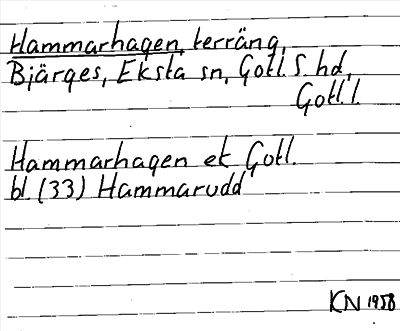 Hammarhagen, terräng,
Bjärges, Eksta sn, Gotl. S. hd,
Gotl. l.
Hammarhagen ek Gotl.
bl. (33) Hammarudd
KN 1958